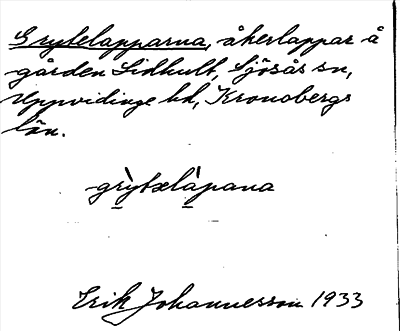 Grytelapparna, åkerlappar å
gården Lidhult, Sjösås sn,
Uppvidinge hd, Kronobergs
län.
grỳtelàpana
Erik Johannesson 1933